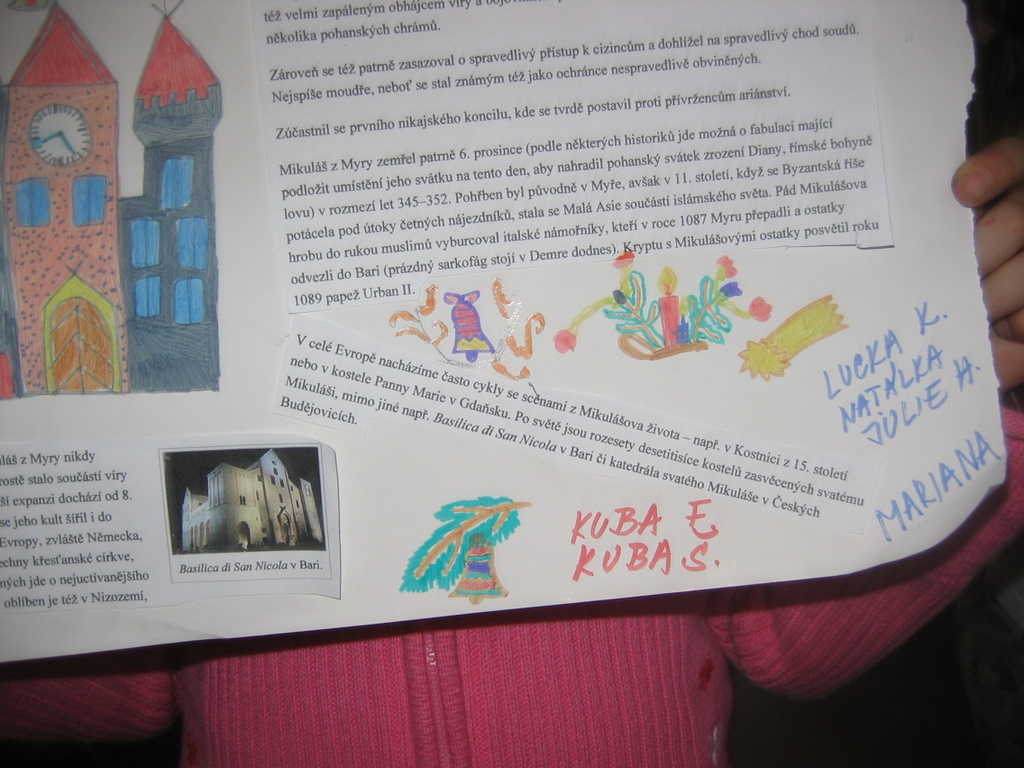 též velmi zapáleným obhájcem víry a
několika pohanských chrámů.
Zároveň se též patrně zasazoval o spravedlivý přístup k cizincům a dohlížel na spravedlivý chod soudů.
Nejspíše moudře, neboť se stal známým též jako ochránce nespravedlivě obviněných.
Zúčastnil se prvního nikajského koncilu, kde se tvrdě postavil proti přívržencům ariánství.
Mikuláš z Myry zemřel patrně 6. prosince (podle některých historiků jde možná o fabulaci mající
podložit umístění jeho svátku na tento den, aby nahradil pohanský svátek zrození Diany, římské bohyně
lovu) v rozmezí let 345–352. Pohřben byl původně v Myře, avšak v 11. století, když se Byzantská říše
potácela pod útoky četných nájezdníků, stala se Malá Asie součástí islámského světa. Pád Mikulášova
hrobu do rukou muslimů vyburcoval italské námořníky, kteří v roce 1087 Myru přepadli a ostatky
odvezli do Bari (prázdný sarkofág stojí v Demre dodnes). Kryptu s Mikulášovými ostatky posvětil roku
1089 papež Urban II.
V celé Evropě nacházíme často cykly se scénami z Mikulášova života – např. v Kostnici z 15. století
nebo v kostele Panny Marie v Gdaňsku. Po světě jsou rozesety desetitisíce kostelů zasvěcených svatému
Mikuláši, mimo jiné např. Basilica di San Nicola v Bari či katedrála svatého Mikuláše v Českých
Budějovicích.
LUCKA K.
NATÁLKA
JULIE H.
MARIANA
KUBA E
KUBA S.
láš z Myry nikdy
rostě stalo součástí víry
ší expanzi dochází od 8.
se jeho kult šířil i do
Evropy, zvláště Německa,
echny křesťanské církve,
ných jde o nejuctívanějšího
oblíben je též v Nizozemí,
Basilica di San Nicola v Bari.